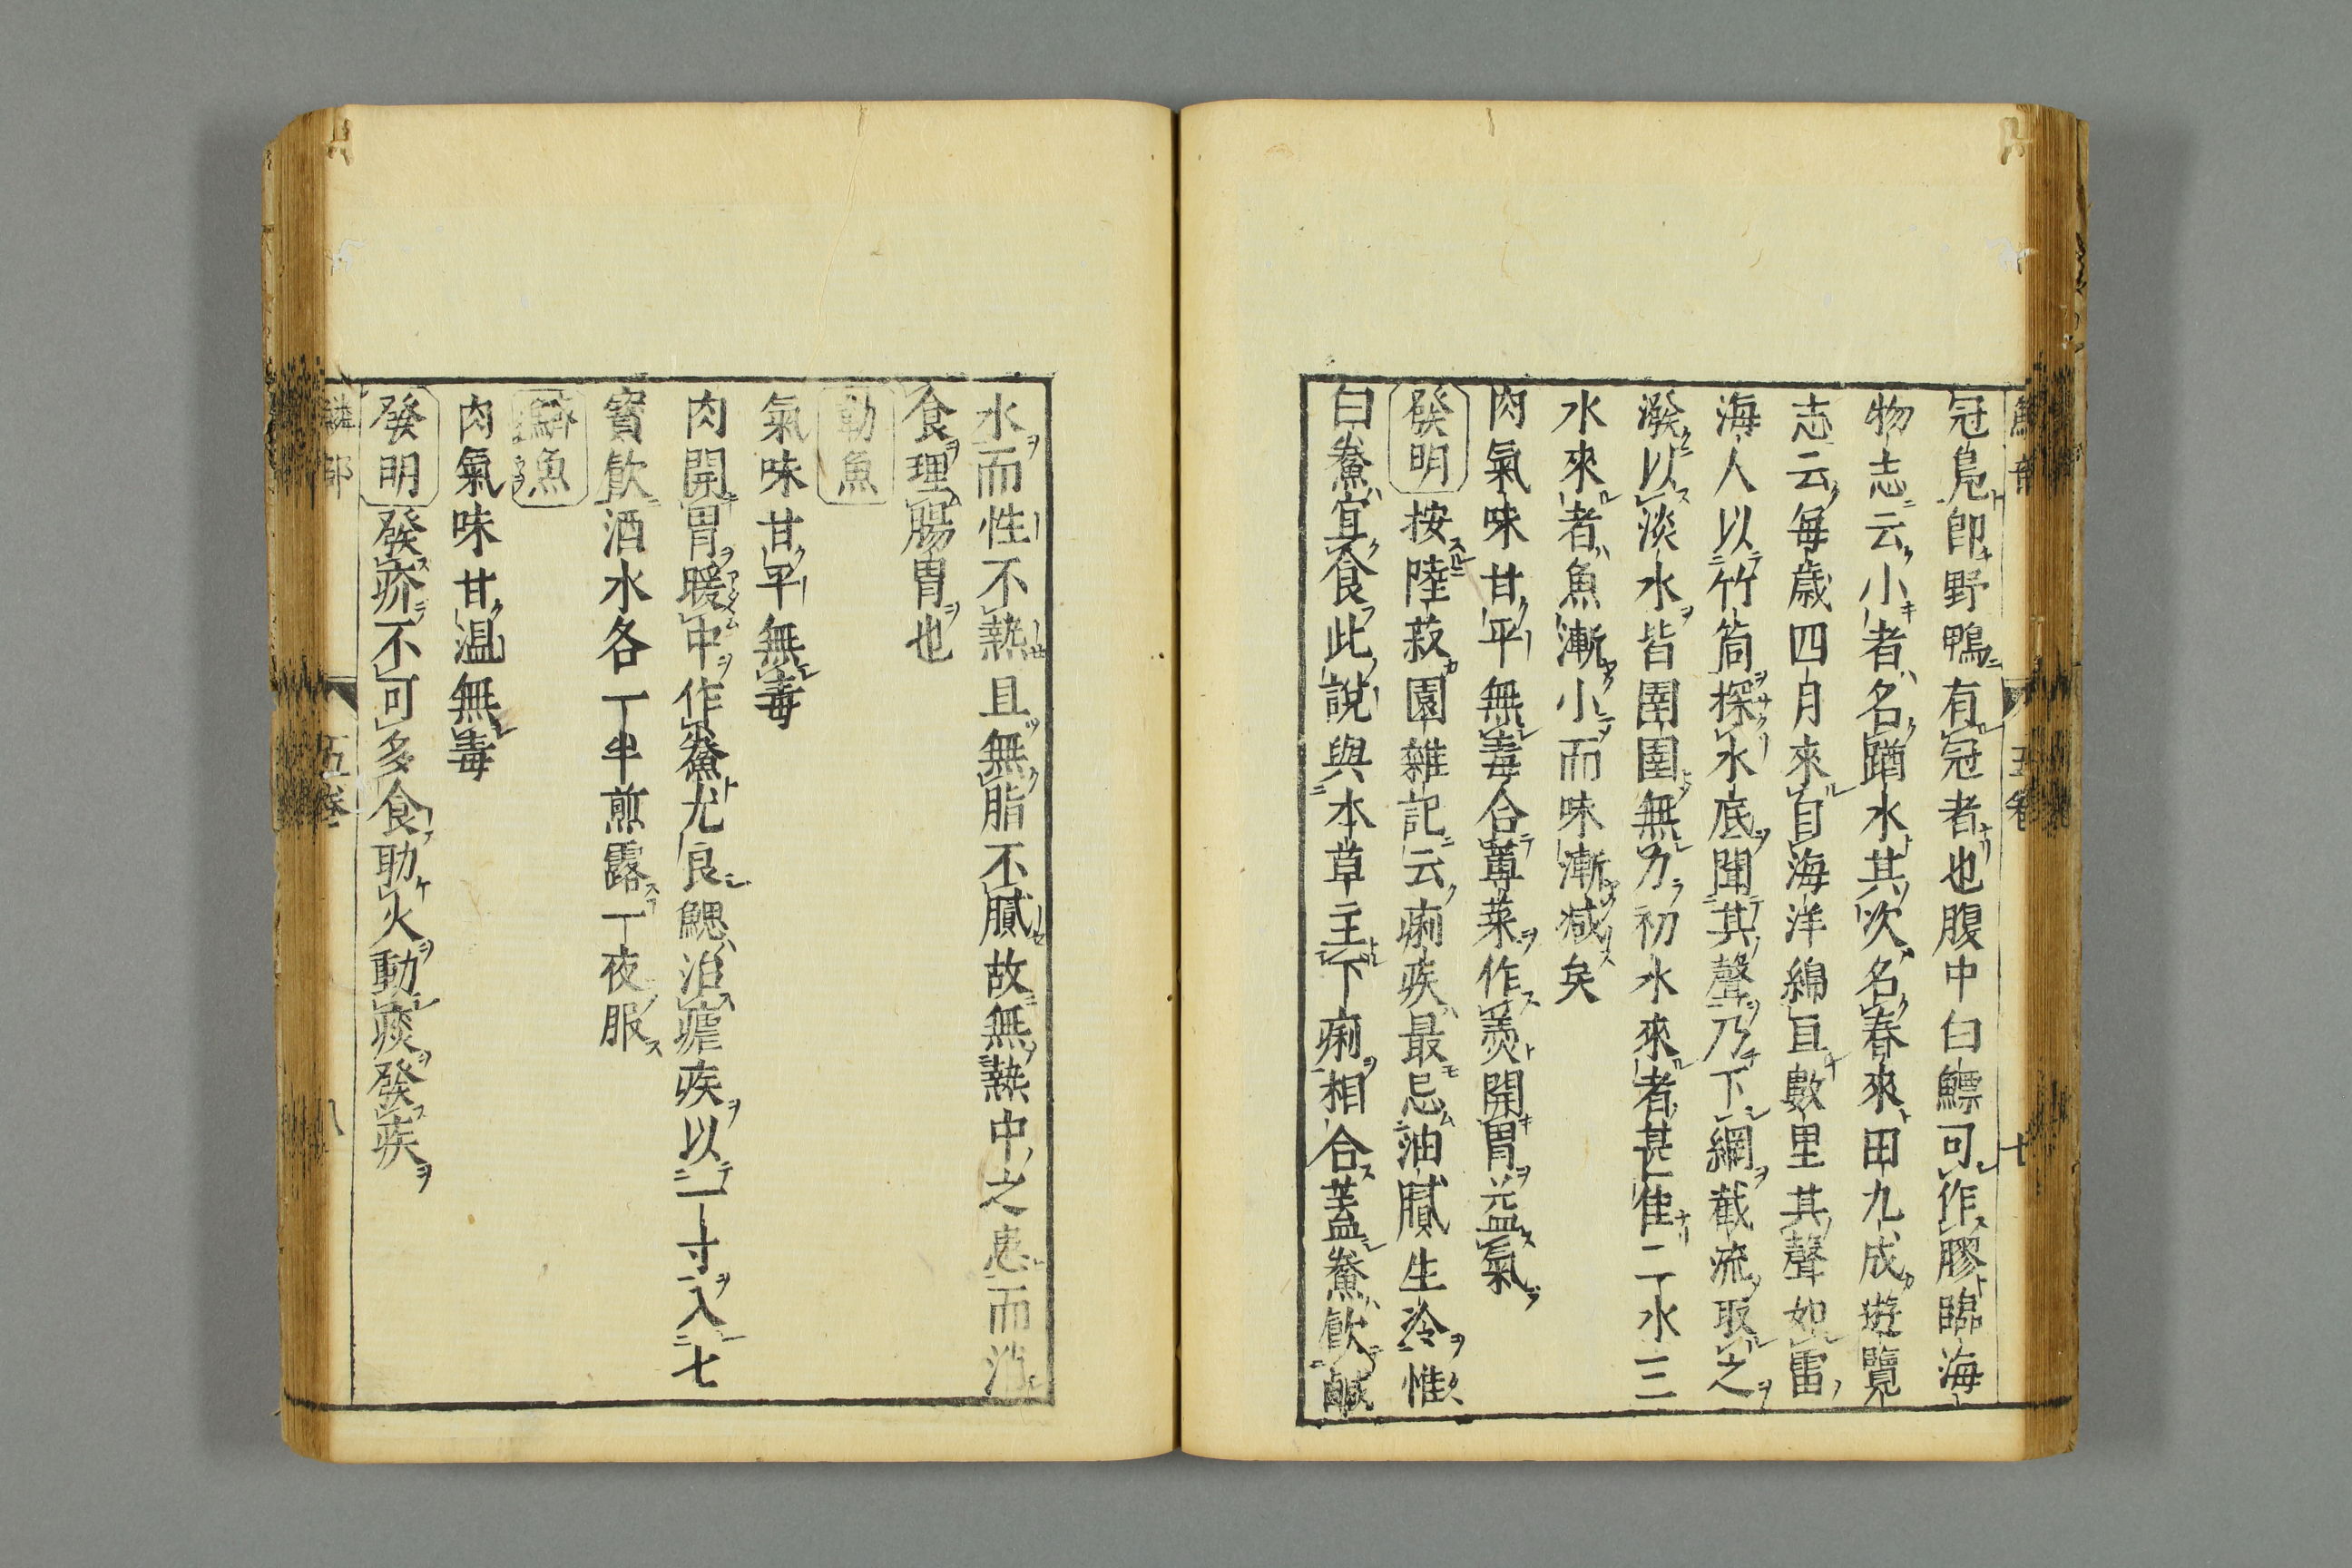 冠鳧即野鴨有冠者也腹中白鰾可作膠臨海
物志云小者名踏水其次名春來田九成遊覽
志云每歲四月來自海洋綿亘數里其聲如雷
海人以竹筒探水底聞其聲乃下網截流取之
潑以淡水皆圉圉無力初水來者甚佳二水三
水來者魚漸小而味漸减矣
肉氣味甘平無毒合蓴菜作羹開胃益氣
發明按陸菽園雜記云痢疾最忌油膩生冷惟
白鯗宜食此說與本草主下痢相合蓋鯗飮鹹
水而性不熱且無脂不膩故無熱中之患而消
食理腸胃也
勒魚
氣味甘平無毒
肉開胃暖中作鯗尤良鰓治瘧疾以一寸入七
寳飮酒水各一半煎露一夜服
鱭魚
肉氣味甘温無毒
發明發疥不可多食助火動痰發疾
鱗部 五卷 八